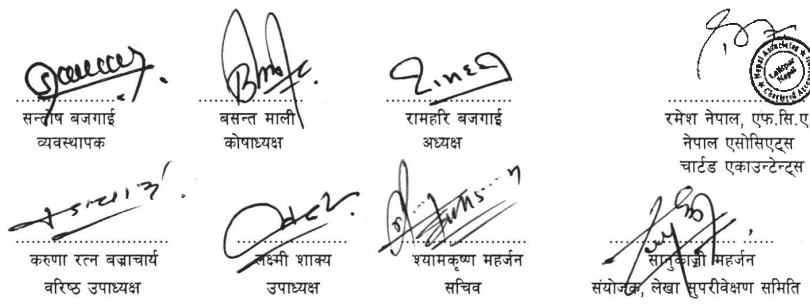 सन्तोष बजगाई
व्यवस्थापक
बसन्त माली
कोषाध्यक्ष
रामहरि बजगाई
अध्यक्ष
रमेश नेपाल, एफ.सि.ए
नेपाल एसोसिएट्स
चार्टड एकाउन्टेन्ट्स
Nepal Associates
Lalitpur
Nepal
करुणा रत्न बज्राचार्य
वरिष्ठ उपाध्यक्ष
लक्ष्मी शाक्य
उपाध्यक्ष
श्यामकृष्ण महर्जन
सचिव
सानुकाजी महर्जन
संयोजक, लेखा सुपरीवेक्षण समिति